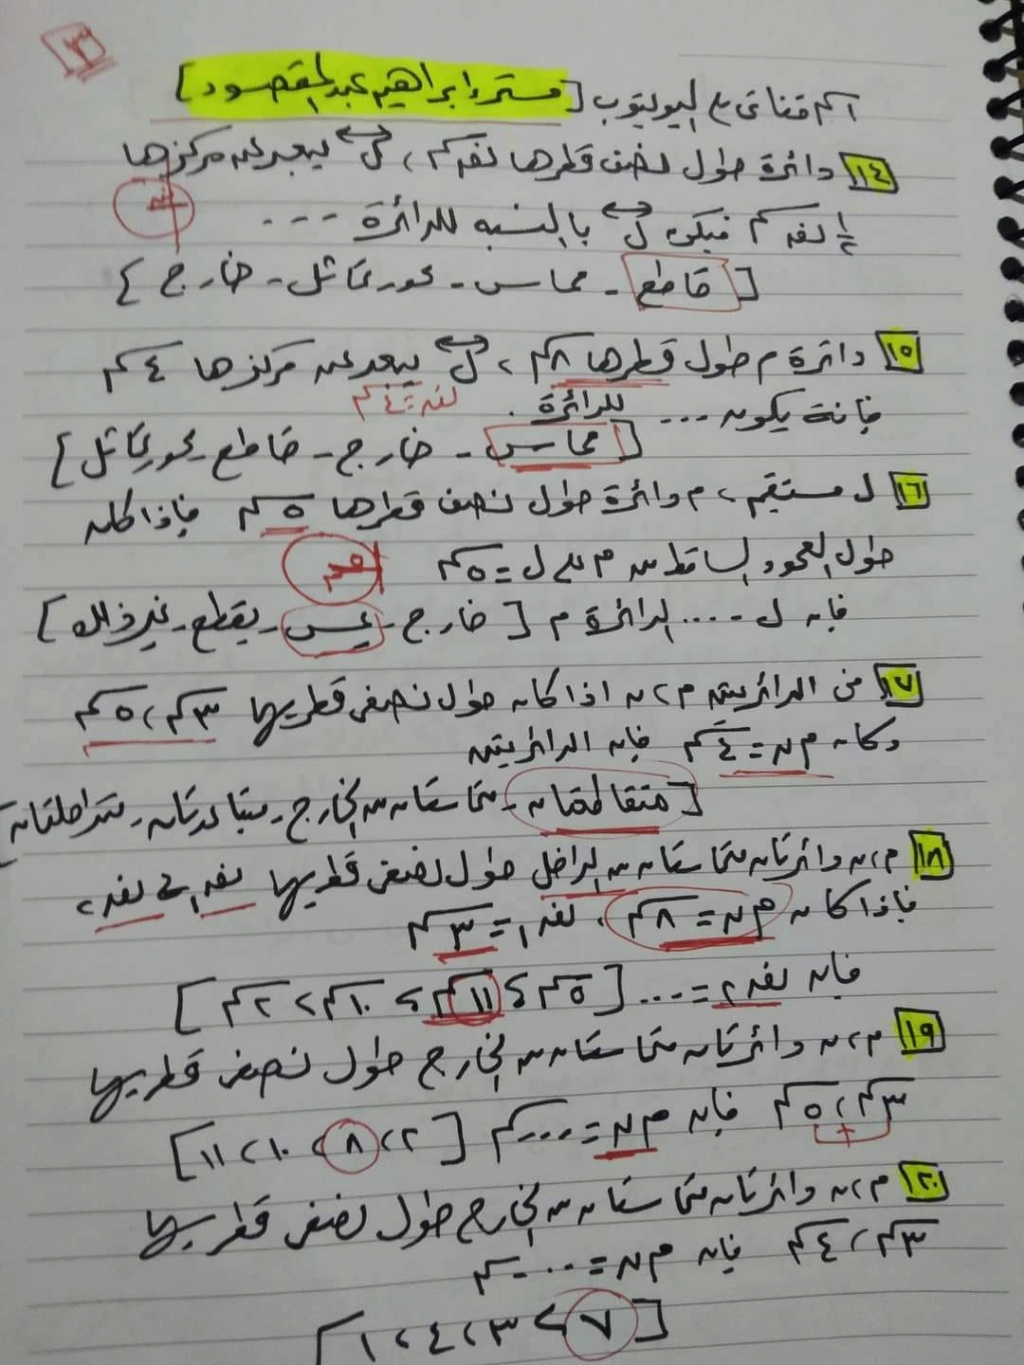 ٣
اسم قناتى ع اليوتيوب [مستر/ ابراهيم عبد المقصود]
١٤ دائرة طول نصف قطرها نفه سم ، ل يبعد عن مركزها
١/٢ نفه سم فيكون ل بالنسبه للدائرة ...
[قاطع - مماس - محور تماثل - خارج]
١٥ دائرة م طول قطرها ٨سم ، ل يبعد عن مركزها ٤سم
نفه = ٤سم
فإنة يكون ... للدائرة .
[مماس - خارج - قاطع - محور تماثل]
١٦ ل مستقيم ، م دائرة طول نصف قطرها ٥سم فإذا كان
طول العمود الساقط من م على ل = ٥سم
فإن ل .... الدائرة م [خارج - يمس - يقطع - غير ذالك]
١٧ فى الدائرتين م ، ن اذا كان طول نصفى قطريها ٣سم ، ٥سم
وكان م ن = ٤سم فإن الدائرتين
[متقاطعتان - متماستان من الخارج - متباعدتان - متداخلتان]
١٨ م ، ن دائرتان متماستان من الداخل طول نصفى قطريها نفه١ ، نفه٢
فإذا كان م ن = ٨سم ، نفه١ = ٣سم
فإن نفه٢ = ... [٥سم ، ١١سم ، ١٠سم ، ٢سم]
١٩ م ، ن دائرتان متماستان من الخارج طول نصفى قطريها
٣سم ، ٥سم فإن م ن = ....سم [٢ ، ٨ ، ١٠ ، ١١]
٢٠ م ، ن دائرتان متماستان من الخارج طول نصفى قطريها
٣سم ، ٤سم فإن م ن = ....سم
[٧ ، ٣ ، ٤ ، ١]